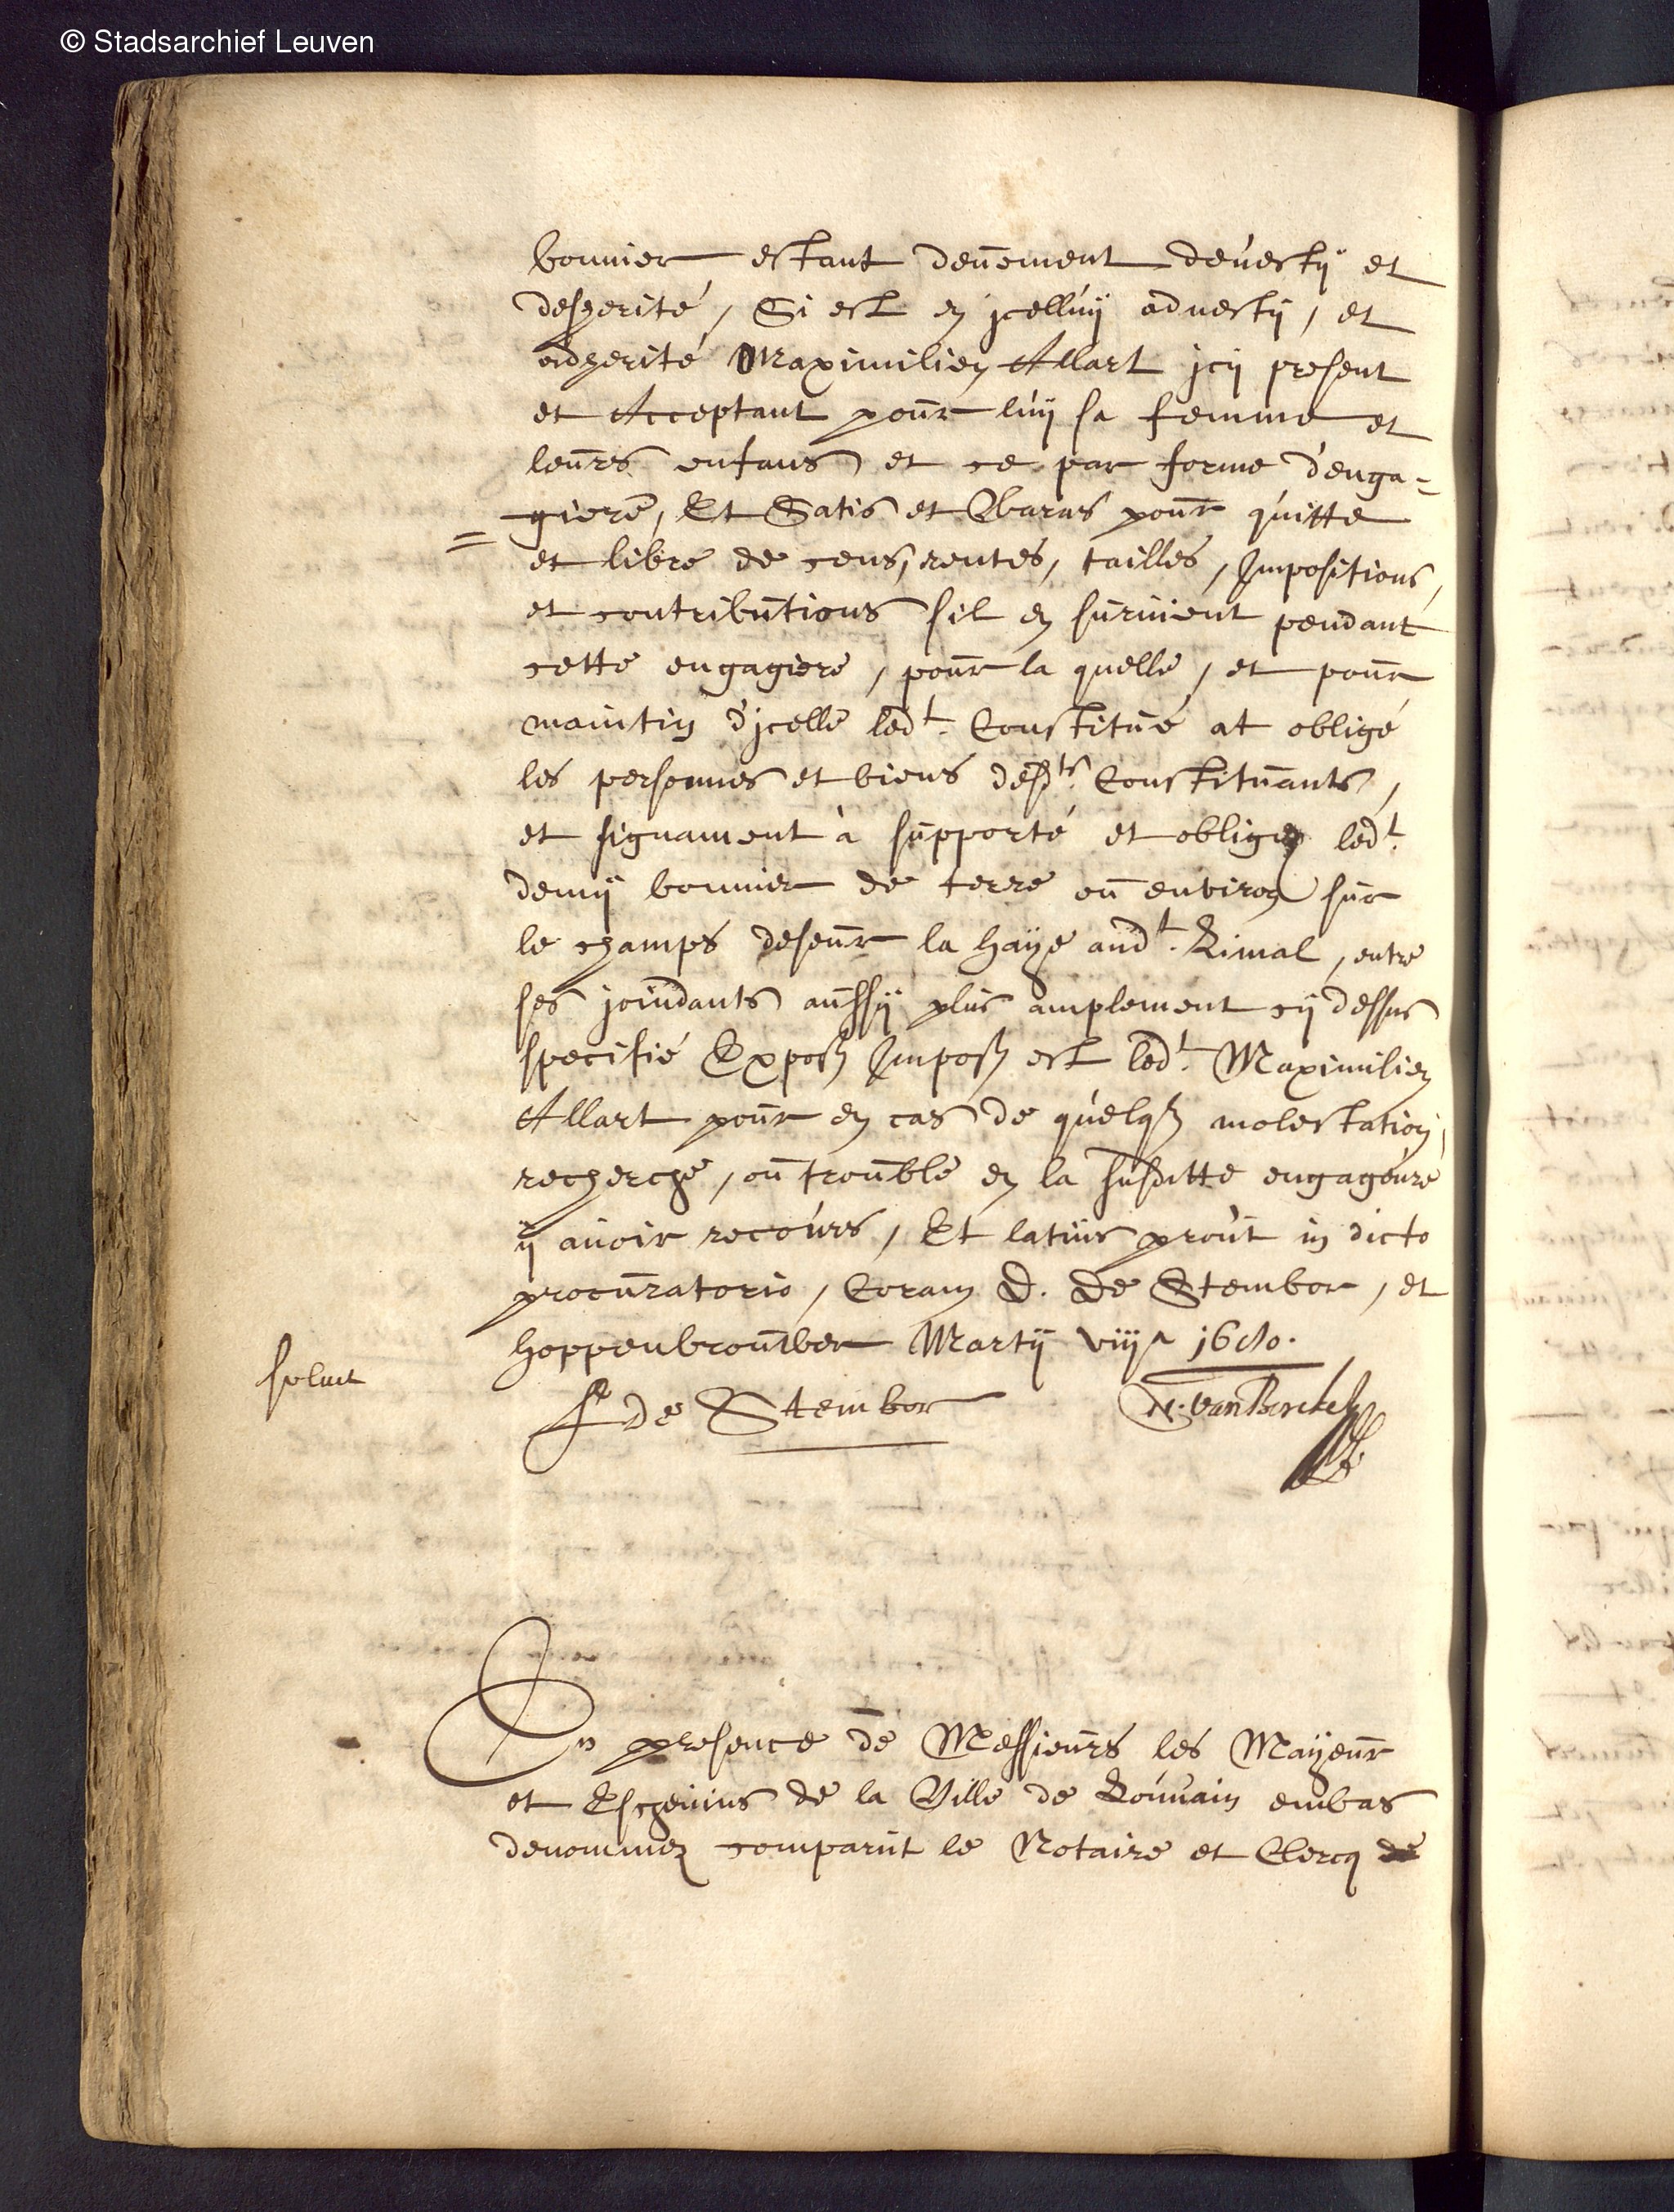 © Stadsarchief Leuven
bonnier estant deuement devestÿ et
desherité, Si est en jcelluÿ advestÿ, et
adherité Maximilien Allart jcÿ present
et Acceptant pour luÿ sa femme et
leurs enfans et ce par forme d'enga=
=giere, Et Satis et Obwaras pour quitte
et libre de cens, rentes, tailles, Impositions,
et contributions s'il en survient pendant
cette engagiere, pour la quelle, et pour
maintin d'jcelle ledt. Constitué at obligé
les personnes et biens desdts. Constituants,
et signament à supporté et obligez ledt.
demÿ bonnier de terre ou environ sur
le champs deseur la haÿe audt. Limal, entre
ses joindants aussÿ plus amplement cÿ dessus
specifié Exposs Imposs est ledt. Maximilien
Allart pour en cas de quelqs molestation,
recherche, ou trouble en la susditte engageure
ÿ avoir recours, Et latius prout in dicto
procuratorio, Coram D. De Stembor, et
hoppenbrouwer Martÿ viija
solvit
de Stembor N. van Berckel
En presence de Messieurs les Maÿeur
et Eschevins de la Ville de Louvain embas
denommez comparut le Notaire et Clercq de